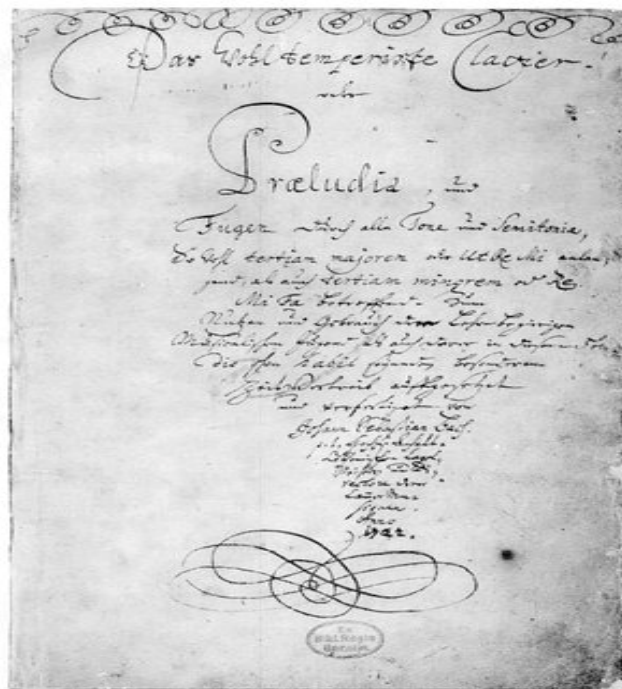 Das Wohltemperirte Clavier.
oder
Præludia, und
Fugen durch alle Tone und Semitonia,
So wohl tertiam majorem oder Ut Re Mi anlan-
gend, als auch tertiam minorem oder Re
Mi Fa betreffend. Zum
Nutzen und Gebrauch der Lehrbegierigen
Musicalischen Jugend, als auch derer in diesem stu-
dio schon habil seyenden besonderem
Zeitvertreib auffgesetzet
und verfertiget von
Johann Sebastian Bach.
p. t. Hochf. Anhalt-
Cöthenischen Capel-
Meistern und
rectore derer
Camer Mu-
siquen.
Anno
1722.
Ex
Bibl. Regia
Berolin.